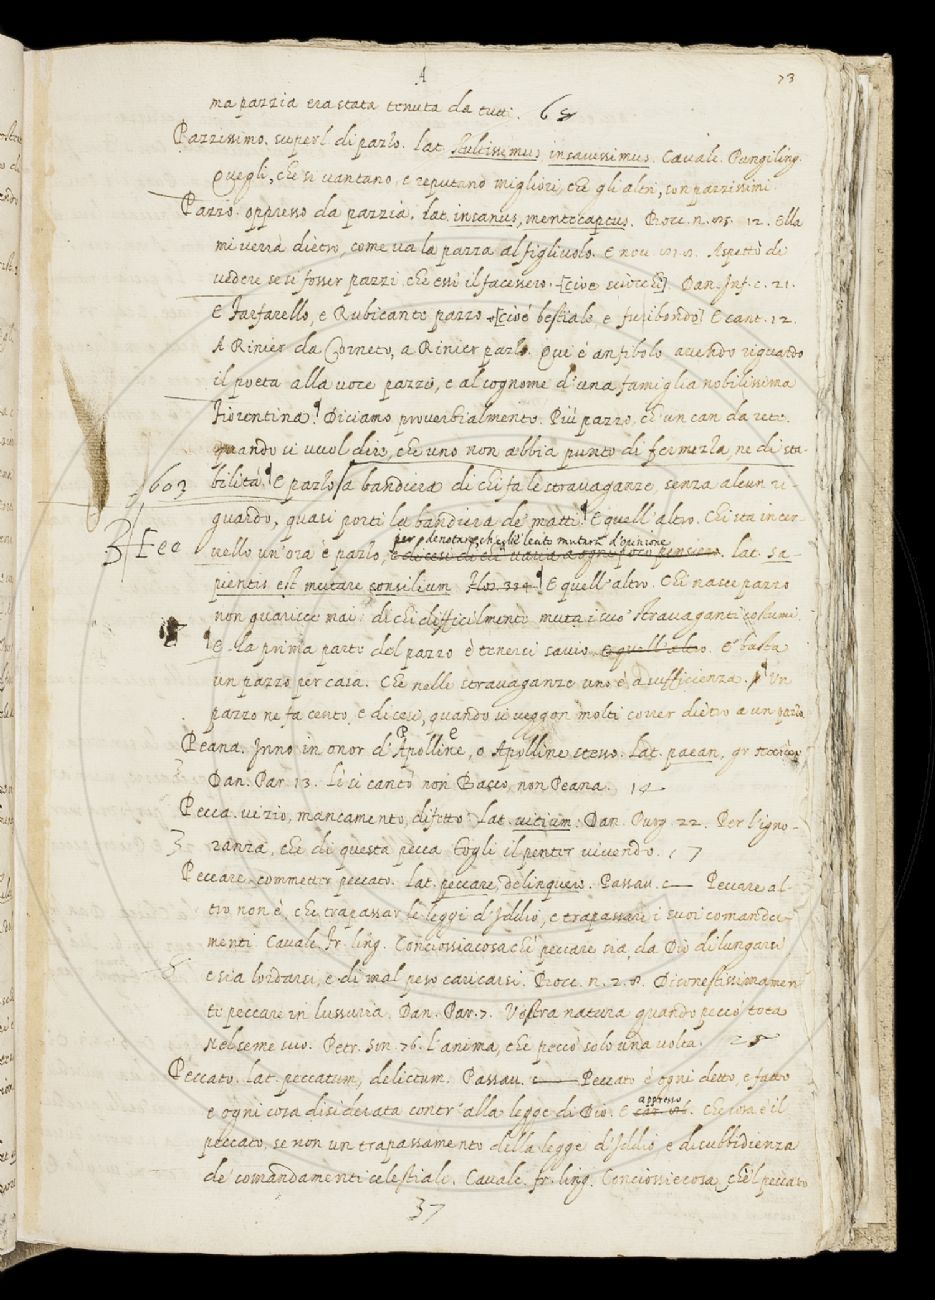 A
73
ma pazzia era stata tenuta da tutti. 65
Pazzissimo. superl. di pazzo. lat. stultissimus, insanissimus. Cavalc. Pungiling.
Quegli, che si vantano, e reputano migliori, che gli altri, son pazzissimi.
Pazzo. oppresso da pazzia. lat. insanus, mentecaptus. Bocc. n. 12. Ella
mi verrà dietro, come va la pazza al figliuolo. E nov. Aspettò di
vedere se si fosser pazzi, che essi il facessero. [cioè sciocchi] Dan. Inf. c. 21.
E Farfarello, e Rubicante pazzo [cioè bestiale, e furibondo] E cant. 12.
A Rinier da Corneto, a Rinier pazzo. Qui è anfibolo avendo riguardo
il poeta alla voce pazzo, e al cognome d'una famiglia nobilissima
Fiorentina. Diciamo proverbialmente. Più pazzo, ch'un can da rete.
quando si vuol dire, che uno non abbia punto di fermezza, ne di sta-
603 bilità. E pazzo a bandiera di chi fa le stravaganze, senza alcun ri-
guardo, quasi porti la bandiera de' matti. E quell'altro. Chi sta in cer-
per denotare, che gli è lecito mutarsi d'opinione
3 Eee vello un'ora è pazzo, e dicesi di chi varia a ogni poco pensiero. lat. Sa-
pientis est mutare consilium Flos. 334. E quell'altro. Chi nasce pazzo
non guarisce mai: di chi difficilmente muta i suoi stravaganti costumi.
E la prima parte del pazzo è tenersi savio. E quell'altro. E' basta
un pazzo per casa. Che nelle stravaganze uno è a sufficienza. Un
pazzo ne fa cento, e dicesi, quando si veggon molti correr dietro a un pazzo
Peana. Inno in onor d'Apolline, o Apolline stesso. Lat. paean, gr
3 Dan. Par. 13. Lì si cantò non Bacco, non Peana. 14
Pecca. vizio, mancamento, difetto. Lat. vitium. Dan. Purg. 22. Per l'igno-
3 ranza, che di questa pecca Togli il penter vivendo. 7
Peccare. commetter peccato. Lat. peccare, delinquere. Passav. c— Peccare al-
tro non è, che trapassar le leggi d'Iddio, e trapassare i suoi comanda-
menti. Cavalc. fr. ling. Conciossiacosachè peccare sia, da Dio dilungarsi
e sia lordarsi, e di mal peso caricarsi. Bocc. n. 2. 8. Disonestissimamen
te peccare in lussuria. Dan. Par. 7. Vostra natura quando peccò tota
Nel seme suo. Petr. Son. 76. l'anima, che peccò solo una volta. 25
Peccato. lat. peccatum, delictum. Passav. c— Peccato è ogni detto, e fatto
appresso
e ogni cosa disiderata contr'alla legge di Dio. E che cosa è il
peccato, se non un trapassamento della legge d'Iddio e disubbidienza
de' comandamenti celestiale. Cavalc. fr. ling. Conciossiecosa che'l peccato
37